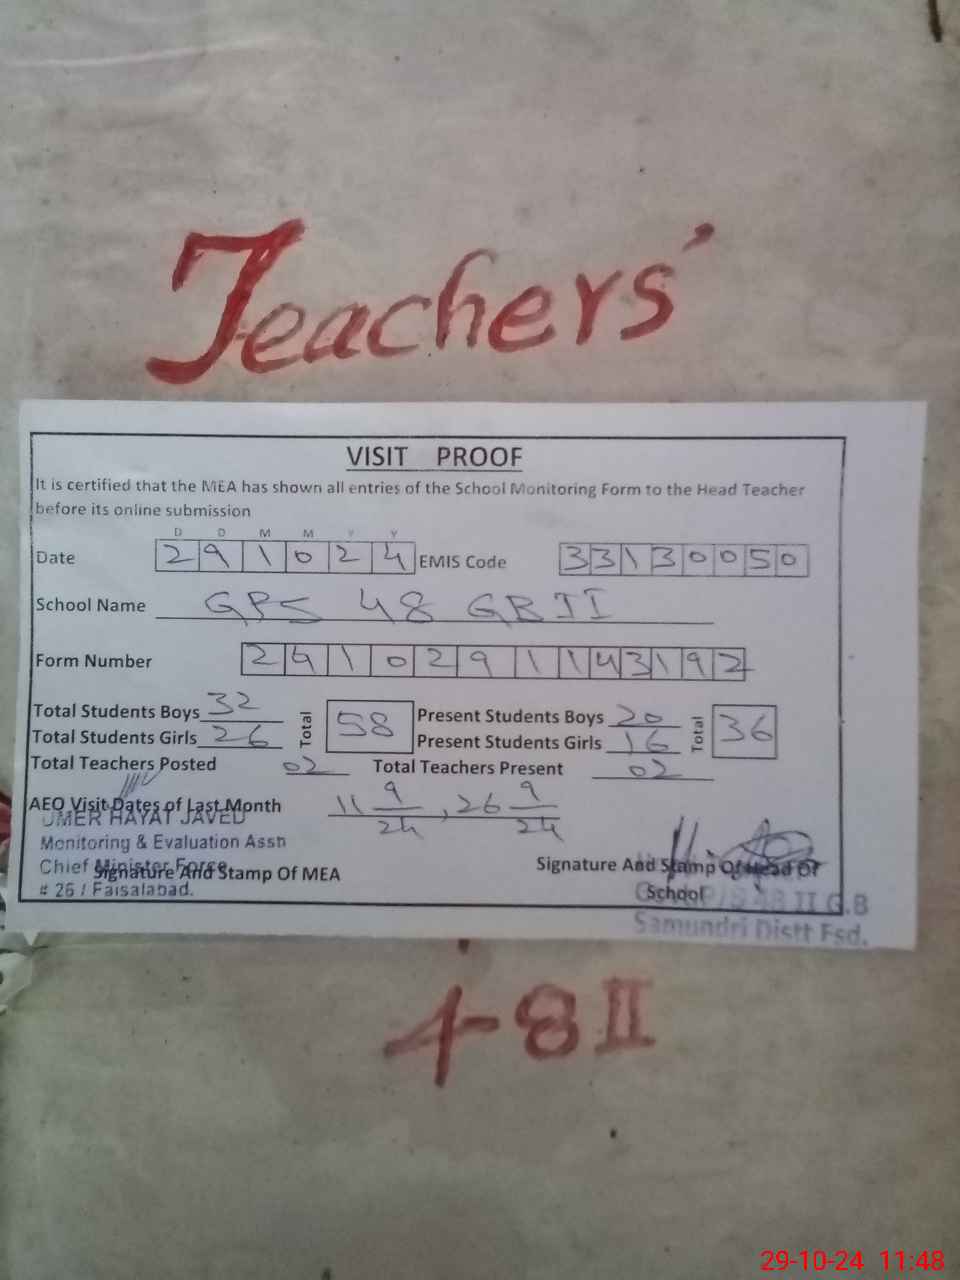 Teachers'
VISIT PROOF
It is certified that the MEA has shown all entries of the School Monitoring Form to the Head Teacher
before its online submission
D D M M Y Y
Date 291024 EMIS Code 33130050
School Name GPS 48 GB II
Form Number 2410291143192
Total Students Boys 32 Total 58 Present Students Boys 20 Total 36
Total Students Girls 26 Present Students Girls 16
Total Teachers Posted 02 Total Teachers Present 02
AEO Visit Dates of Last Month 11 9/24, 26 9/24
UMER HAYAT JAVED
Monitoring & Evaluation Asstt
Chief Minister Force
Signature And Stamp Of MEA
# 26 / Faisalabad.
Signature And Stamp Of Head Of
School
II G.B
Samundri Distt Fsd.
48 II
29-10-24 11:48